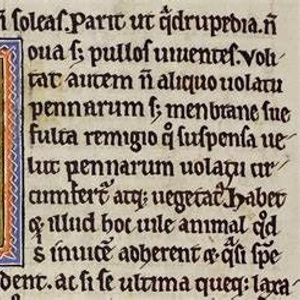 n̄ soleas. Parit ut q̄drupedia. n̄
oua s; pullos uiuentes. Voli
tat autem n̄ aliquo uolatu
pennarum s; menbrane sue
fulta remigio q° suspensa ue
lut pennarum uolatu cir
cumfert᷑ atq; uegetat᷑. Habet
⁊ illud hoc uile animal qd̄
s̄ inuicē adherent ⁊ q̄si spē
dent. ac si se ultima queq; laxa